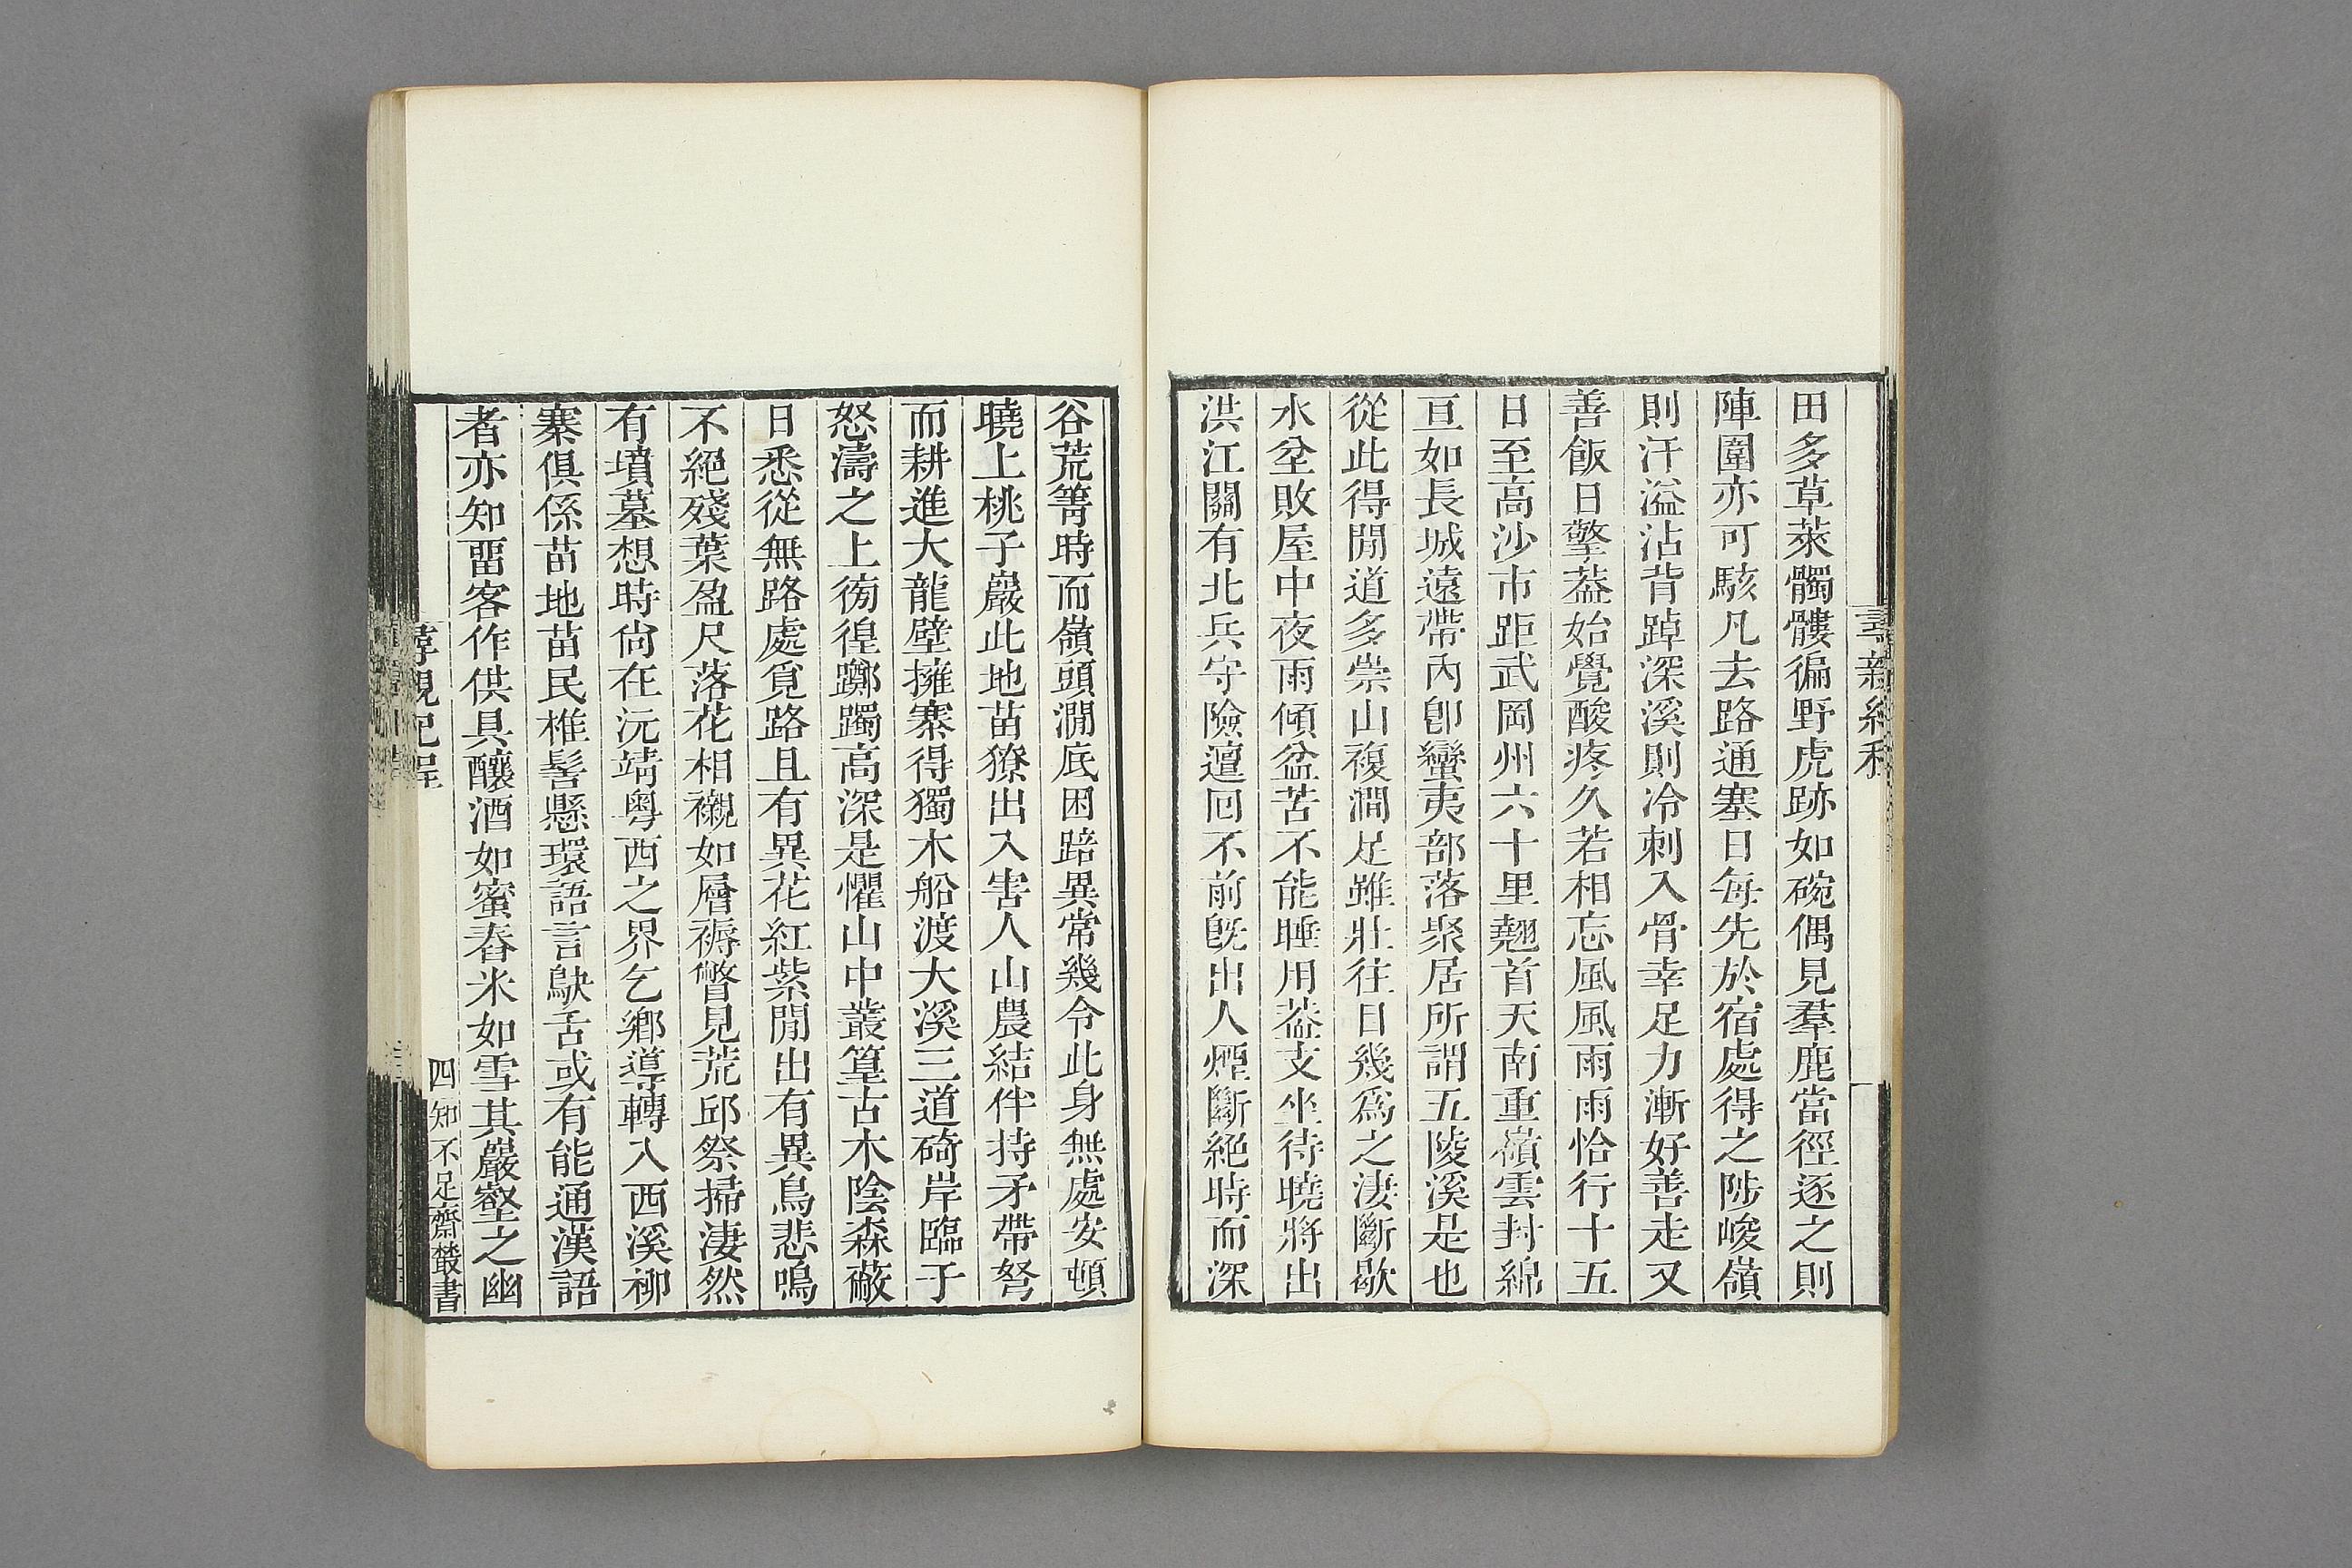 田多草萊髑髏徧野虎跡如碗偶見羣鹿當徑逐之則
陣圍亦可駭凡去路通塞日每先於宿處得之陟峻嶺
則汗溢沾背踔深溪則冷刺入骨幸足力漸好善走又
善飯日擎葢始覺酸疼久若相忘風風雨雨恰行十五
日至高沙市距武岡州六十里翹首天南重嶺雲封綿
亘如長城遠帶內卽蠻夷部落聚居所謂五陵溪是也
從此得閒道多崇山複澗足雖壯往日幾為之淒斷歇
水坌敗屋中夜雨傾盆苦不能睡用葢支坐待曉將出
洪江關有北兵守險邅回不前旣出人煙斷絕時而深
谷荒箐時而嶺頭澗底困踣異常幾令此身無處安頓
曉上桃子巖此地苗獠出入害人山農結伴持矛帶弩
而耕進大龍壁擁寨得獨木船渡大溪三道碕岸臨于
怒濤之上徬徨躑躅高深是懼山中叢篁古木陰森蔽
日悉從無路處覓路且有異花紅紫閒出有異鳥悲鳴
不絕殘葉盈尺落花相襯如層褥瞥見荒邱祭掃淒然
有墳墓想時尙在沅靖粤西之界乞鄉導轉入西溪柳
寨俱係苗地苗民椎髻懸環語言鴃舌或有能通漢語
者亦知畱客作供具釀酒如蜜舂米如雪其巖壑之幽
尋親紀程
四
知不足齋叢書